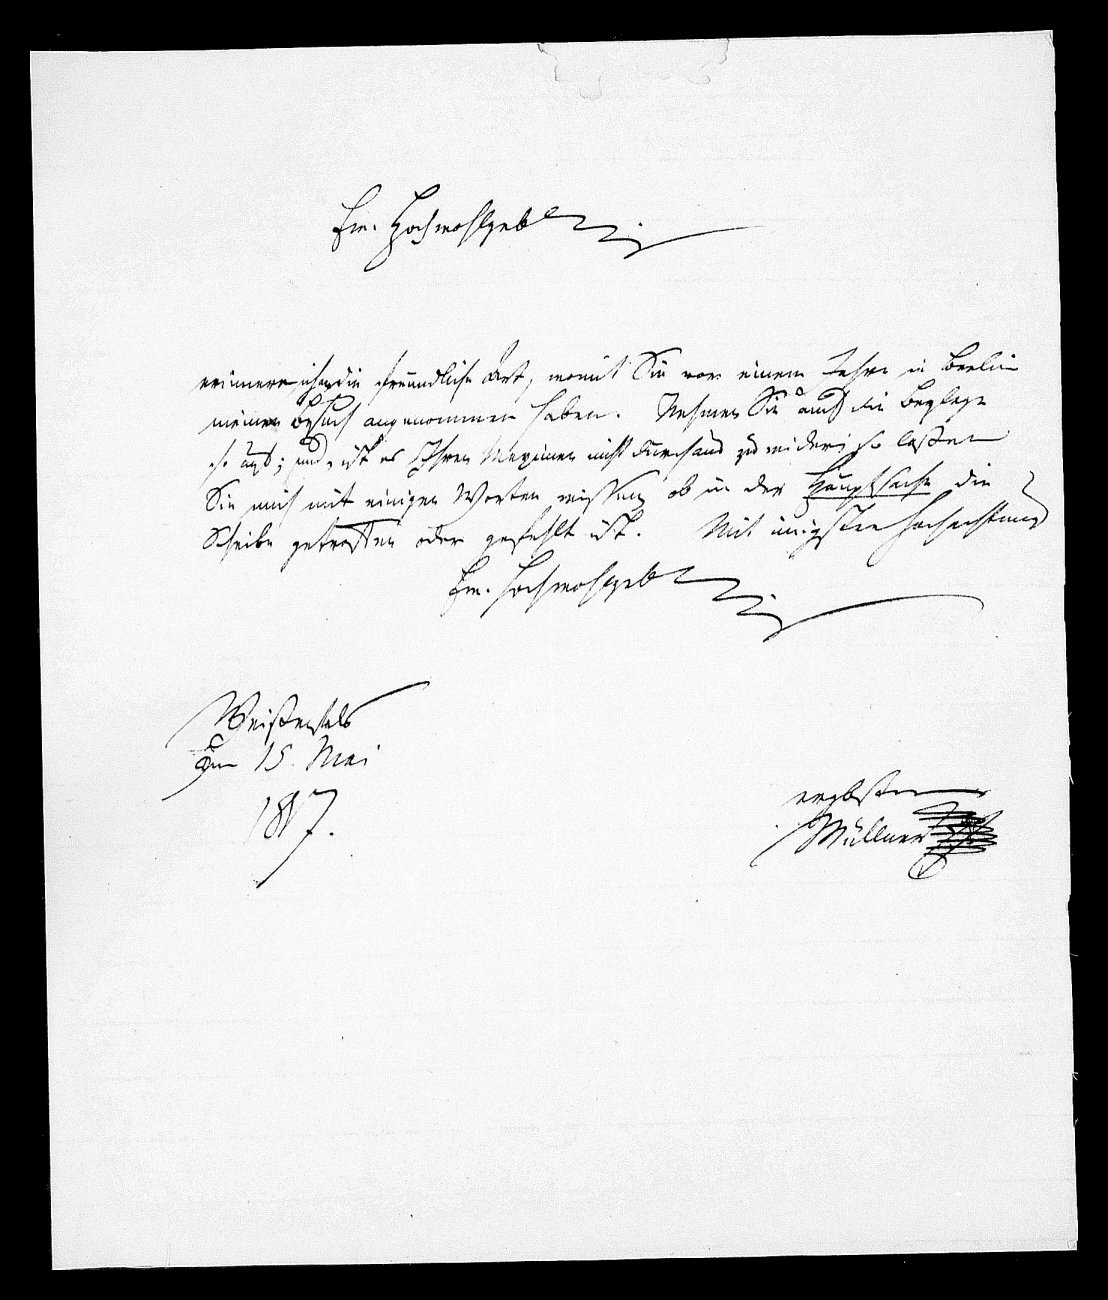 Ew. Hochwohlgeb
erinnere ich an die freundliche Art, womit Sie vor einem Jahre in Berlin
meinen Besuch angenommen haben. Nehmen Sie auch die Beylage
so auf; und, ist es Ihren Maximen nicht durchaus zuwider, so lassen
Sie mich mit einigen Worten wissen, ob in der Hauptsache die
Scheibe getroffen oder gefehlt ist. Mit innigster Hochachtung
Ew. Hochwohlgeb
Weißenfels
den 15. Mai
1817.
ergbster
Müllner